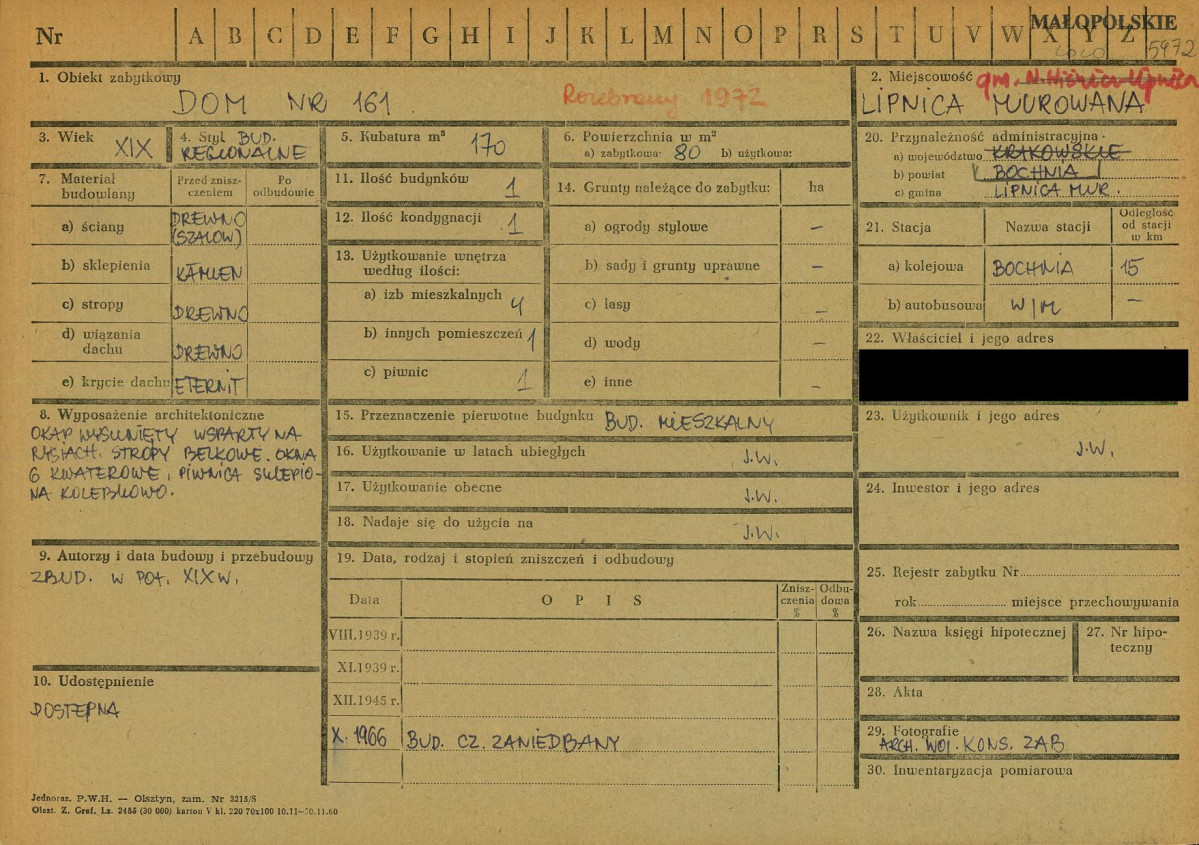 MAŁOPOLSKIE
Nr A B C D E F G H I J K L M N O P R S T U V W X Y Z
5972
1. Obiekt zabytkowy
DOM NR 161.
Rozebrany 1972
2. Miejscowość gm.
LIPNICA MUROWANA
3. Wiek
XIX
4. Styl BUD.
REGIONALNE
5. Kubatura m³
170
6. Powierzchnia w m²
a) zabytkowa: 80 b) użytkowa:
20. Przynależność administracyjna
a) województwo KRAKOWSKIE
b) powiat BOCHNIA
c) gmina LIPNICA MUR.
7. Materiał budowlany
Przed znisz-
czeniem
Po
odbudowie
a) ściany DREWNO
(SZALOW)
b) sklepienia KAMIEŃ
c) stropy DREWNO
d) wiązania
dachu DREWNO
e) krycie dachu ETERNIT
11. Ilość budynków 1
12. Ilość kondygnacji 1
13. Użytkowanie wnętrza
według ilości:
a) izb mieszkalnych 4
b) innych pomieszczeń 1
c) piwnic 1
14. Grunty należące do zabytku: ha
a) ogrody stylowe –
b) sady i grunty uprawne –
c) lasy –
d) wody –
e) inne –
21. Stacja Nazwa stacji
Odległość
od stacji
w km
a) kolejowa BOCHNIA 15
b) autobusowa W/M –
22. Właściciel i jego adres
8. Wyposażenie architektoniczne
OKAP WYSUNIĘTY WSPARTY NA
RYSIACH. STROPY BELKOWE. OKNA
6 KWATEROWE, PIWNICA SKLEPIO-
NA KOLEBKOWO.
15. Przeznaczenie pierwotne budynku BUD. MIESZKALNY
16. Użytkowanie w latach ubiegłych J.W.
17. Użytkowanie obecne J.W.
18. Nadaje się do użycia na J.W.
23. Użytkownik i jego adres
J.W.
24. Inwestor i jego adres
9. Autorzy i data budowy i przebudowy
ZBUD. W POŁ. XIX W.
19. Data, rodzaj i stopień zniszczeń i odbudowy
Data OPIS
Znisz-
czenia
%
Odbu-
dowa
%
VIII.1939 r.
XI.1939 r.
XII.1945 r.
X. 1966 BUD. CZ. ZANIEDBANY
25. Rejestr zabytku Nr
rok miejsce przechowywania
26. Nazwa księgi hipotecznej
27. Nr hipo-
teczny
28. Akta
10. Udostępnienie
DOSTĘPNA
29. Fotografie
ARCH. WOJ. KONS. ZAB
30. Inwentaryzacja pomiarowa
Jednoraz. P.W.H. — Olsztyn, zam. Nr 3215/S
Olszt. Z. Graf. Lz. 2485 (30 000) karton V kl. 220 70x100 10.11—30.11.60